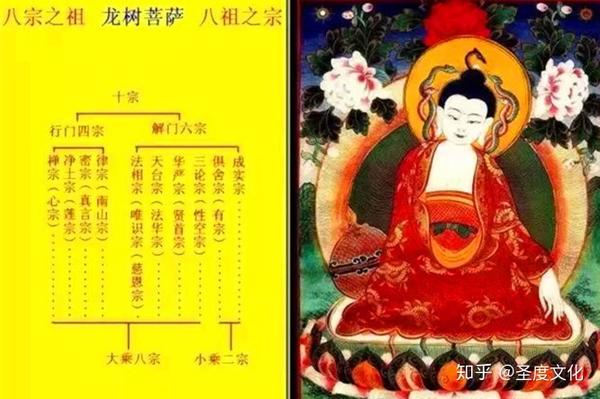 八宗之祖 龙树菩萨 八祖之宗
十宗
行门四宗
解门六宗
禅宗（心宗）
净土宗（莲宗）
密宗（真言宗）
律宗（南山宗）
法相宗（唯识宗）（慈恩宗）
天台宗（法华宗）
华严宗（贤首宗）
三论宗（性空宗）
俱舍宗（有宗）
成实宗
大乘八宗
小乘二宗
知乎 @圣度文化